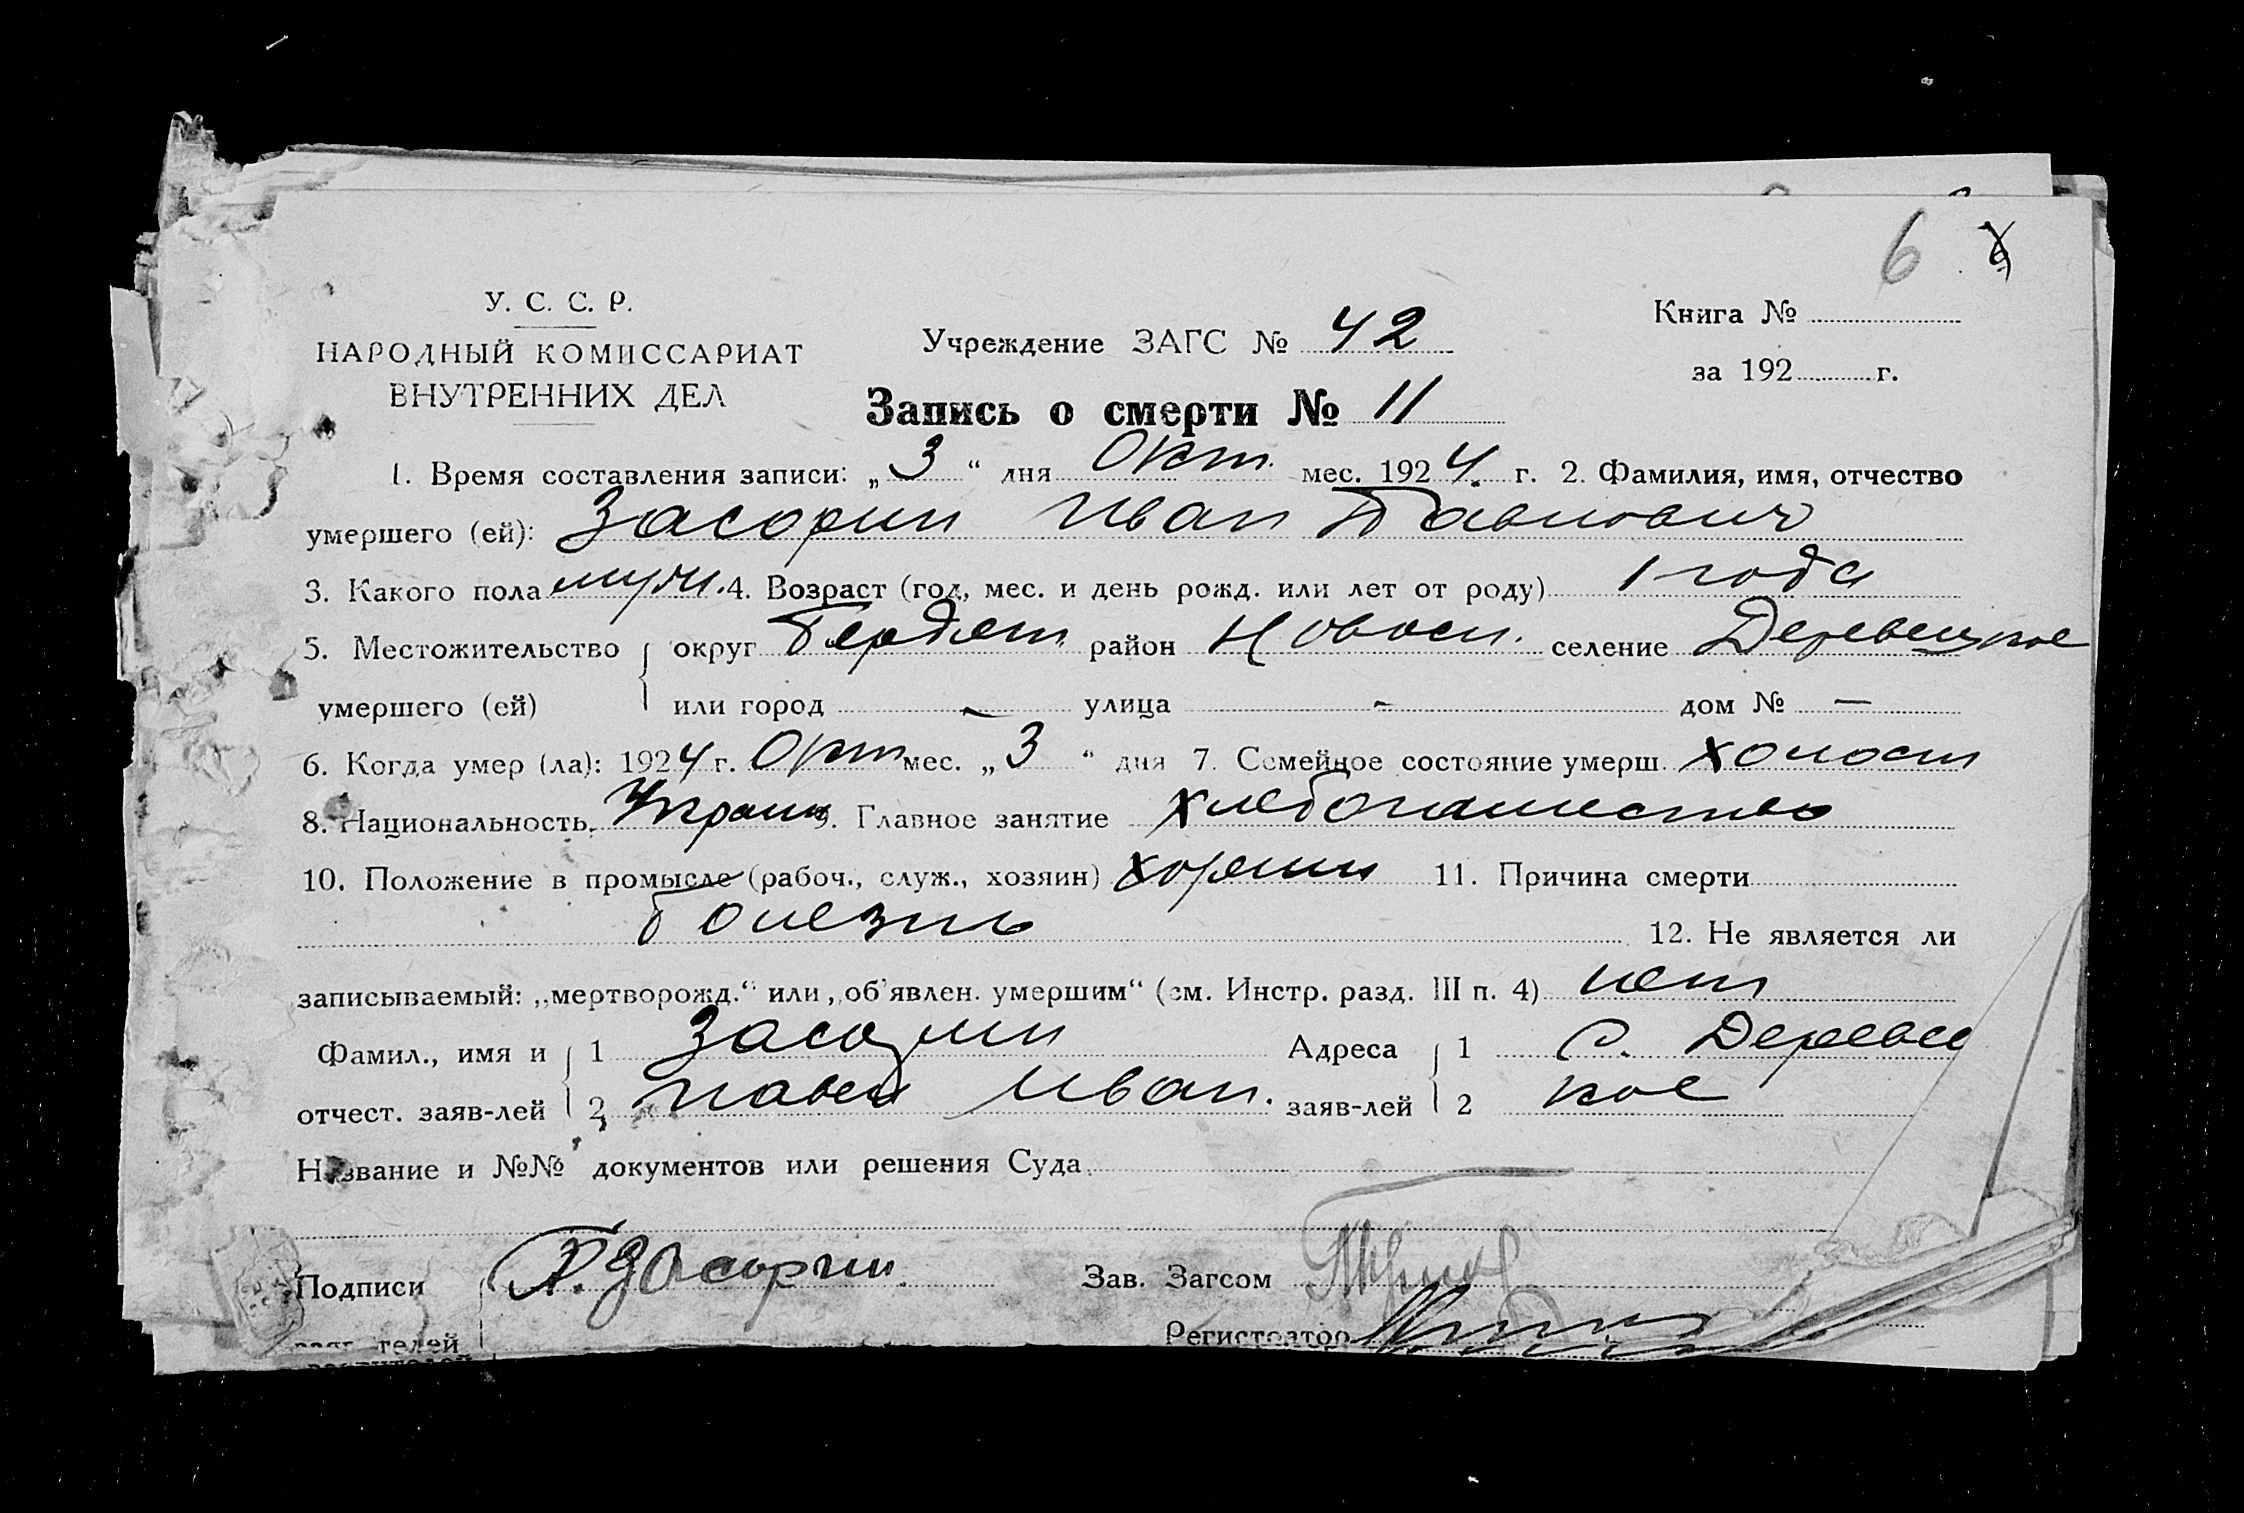 6
У. С. С. Р.
НАРОДНЫЙ КОМИССАРИАТ
ВНУТРЕННИХ ДЕЛ
Учреждение ЗАГС № 42
Книга №
за 192 г.
Запись о смерти № 11
1. Время составления записи: „3“ дня Окт. мес. 1924. г. 2. Фамилия, имя, отчество
умершего (ей): Засорин Иван Павлович
3. Какого пола муж. 4. Возраст (год, мес. и день рожд. или лет от роду) 1 года
5. Местожительство округ Бердян район Новосп. селение Деревецкое
умершего (ей) или город - улица - дом № —
6. Когда умер (ла): 1924 г. Окт мес. „3“ дня 7. Семейное состояние умерш. холост
8. Национальность Украин 9. Главное занятие хлебопашество
10. Положение в промысле (рабоч., служ., хозяин) 11. Причина смерти
болезнь 12. Не является ли
записываемый: „мертворожд.“ или „об'явлен. умершим“ (см. Инстр. разд. III п. 4) нет
Фамил., имя и 1 Засорин Адреса 1 с. Деревец
отчест. заяв-лей 2 Павел Иван. заяв-лей 2 кое
Название и №№ документов или решения Суда
Подписи П. Засорин. Зав. Загсом
заяв-телей Регистратор